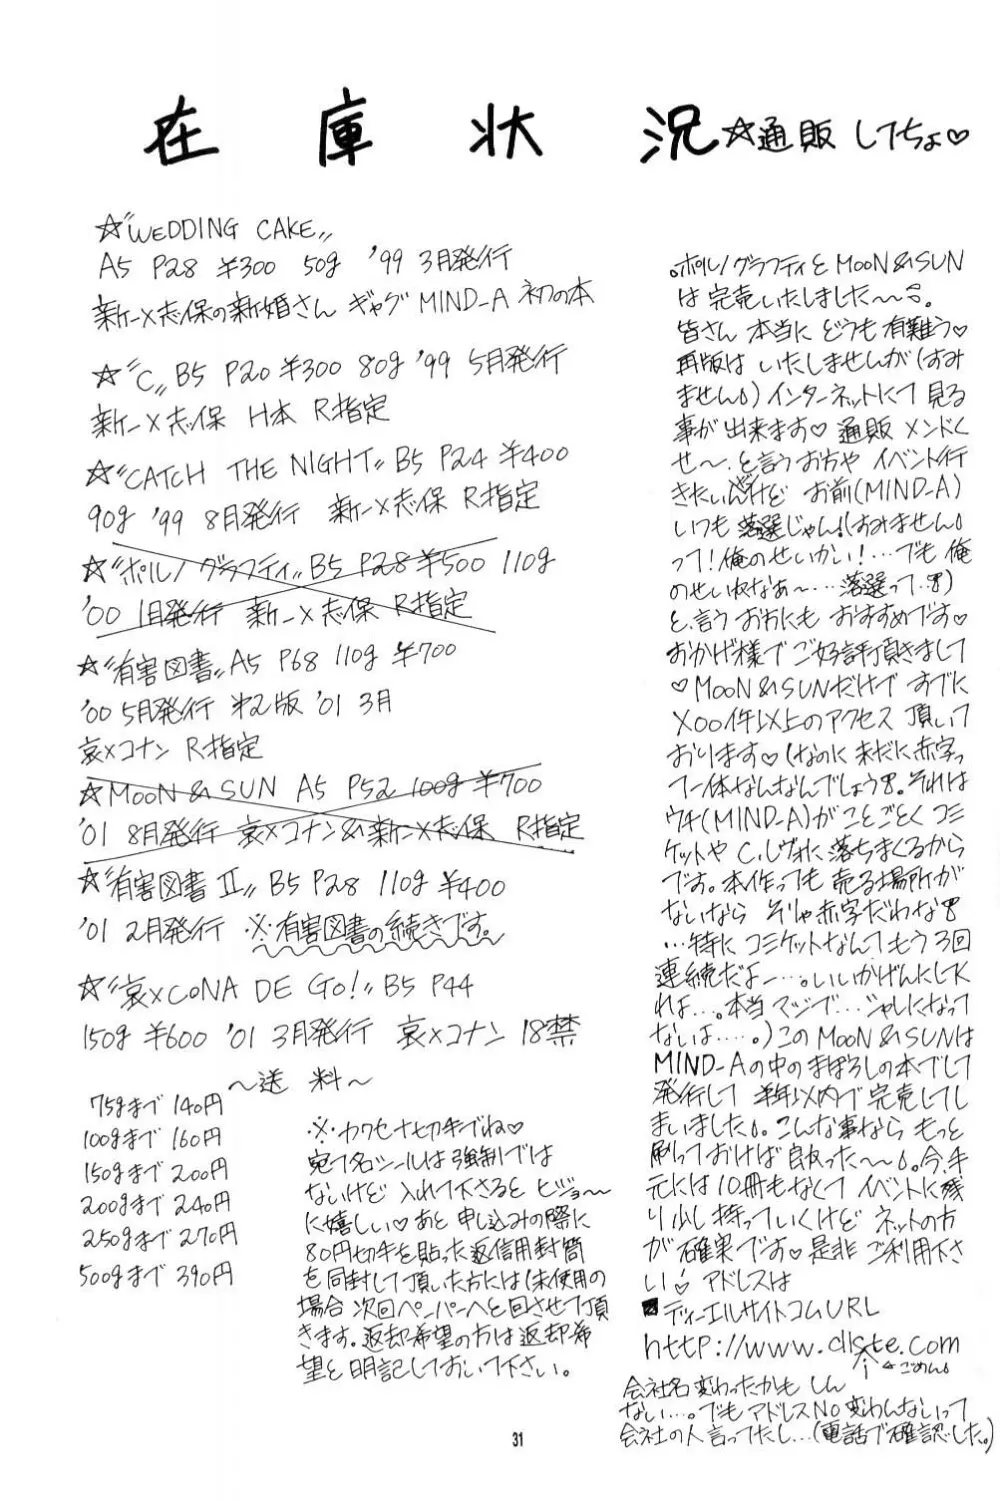 在庫状況 ☆通販してちょ♡
☆"WEDDING CAKE"
A5 P28 ¥300 50g '99 3月発行
新一×志保の新婚さん ギャグ MIND_A 初の本
☆"C" B5 P20 ¥300 80g '99 5月発行
新一×志保 H本 R指定
☆"CATCH THE NIGHT" B5 P24 ¥400
90g '99 8月発行 新一×志保 R指定
☆"ポルノグラフティ" B5 P28 ¥500 110g
'00 1月発行 新一×志保 R指定
☆"有害図書" A5 P68 110g ¥700
'00 5月発行 第2版 '01 3月
哀×コナン R指定
☆MOON&SUN A5 P52 100g ¥700
'01 8月発行 哀×コナン&新一×志保 R指定
☆"有害図書Ⅱ" B5 P28 110g ¥400
'01 2月発行 ※有害図書の続きです。
☆"哀×CONA DE GO!" B5 P44
150g ¥600 '01 3月発行 哀×コナン 18禁
〜送料〜
75gまで 140円
100gまで 160円
150gまで 200円
200gまで 240円
250gまで 270円
500gまで 390円
※カワセナ切手でね♡
宛て名シールは強制では
ないけど 入れて下さると ヒジョ〜
に嬉しい♡あと 申し込みの際に
80円切手を貼った返信用封筒
を同封して頂いた方には(未使用の
場合 次回ペーパーへと回させて頂
きます。返却希望の方は返却希
望と明記しておいて下さい。
。ポルノグラフティとMOON&SUN
は完売いたしました〜。
皆さん 本当に どうも 有難う♡
再版は いたしませんが(すみ
ません)インターネットにて 見る
事が 出来ます♡ 通販 メンドく
せ〜。と言うお方や イベント行
きたいんだけど お前(MIND_A)
いつも 落選じゃん!(すみません
って!俺のせいかい!…でも 俺
のせいねなぁ〜…落選って)
と、言う お方にも おすすめです♡
おかげ様で ご好評頂きまして
♡MOON&SUNだけで すでに
×00件以上のアクセス 頂いて
おります♡(なのに 未だに赤字っ
て一体なんなんでしょう。それは
ウチ(MIND_A)が ことごとく コミ
ケットや C.レヴォに 落ちまくるから
です。本作っても 売る場所が
ないなら そりゃ赤字だわな
…特に コミケットなんて もう 3回
連続だよー…。いいかげんにしてく
れよ…。本当 マジで…シャレになって
ないよ……。)この MOON&SUNは
MIND_Aの中の まぼろしの本でして
発行して 半年以内で 完売してし
まいました。こんな事なら もっと
刷っておけば 良かった〜。今、手
元には 10冊もなくて イベントに残
り少し 持っていくけど ネットの方
が 確実です♡ 是非 ご利用下さ
い♡ アドレスは
■ディーエルサイトコムURL
ごめん
会社名変わったかも しん
ない…。でも アドレスNo 変わんないって
会社の人言ってたし…(電話で確認した。)
31